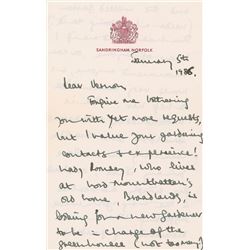 SANDRINGHAM, NORFOLK
January 5th
1986.
Dear Vernon
Forgive me bothering
you with yet more requests,
but I value your gardening
contacts & experience!
Lady Romsey, who lives
at Lord Mountbatten's
old home, Broadlands, is
looking for a new gardener
to be in charge of the
greenhouses (not too many)